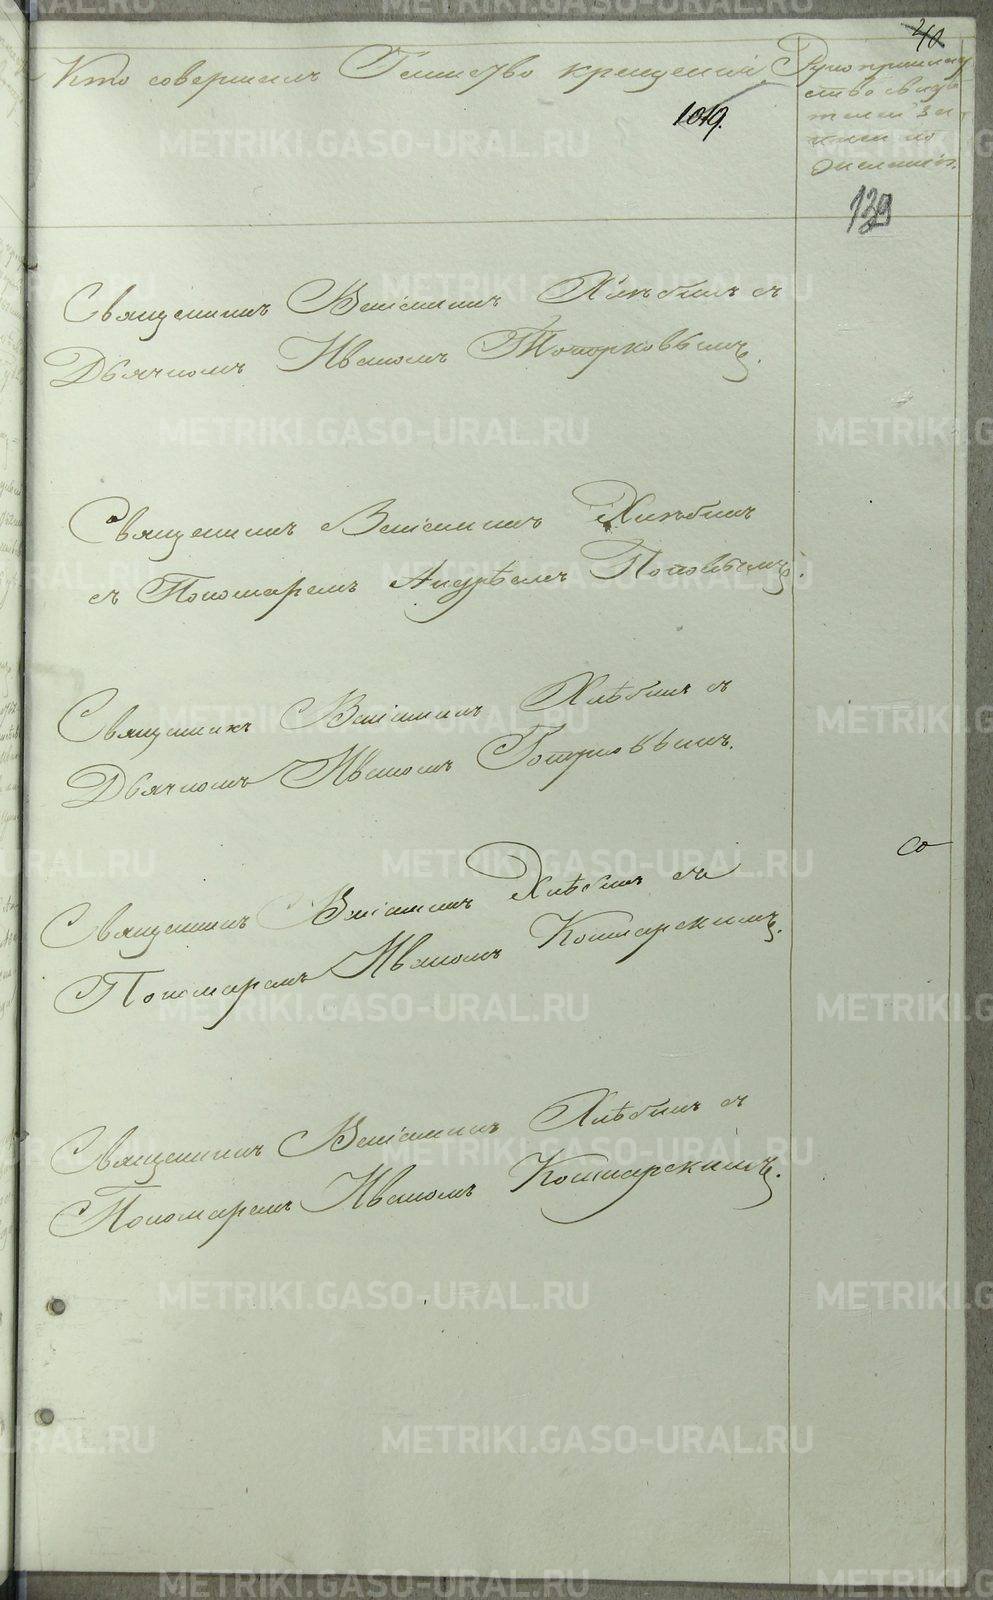 40
Кто совершалъ Таинство крещенія.
Рукоприклад
ство свидѣ
телей за
писи по
желанію.
1019.
139
Священникъ Веніаминъ Хлѣбинъ съ
Дьячкомъ Иваномъ Топорковымъ.
Священникъ Веніаминъ Хлѣбинъ
съ Пономаремъ Андрѣемъ Поповымъ.
Священникъ Веніаминъ Хлѣбинъ съ
Дьячкомъ Иваномъ Топорковымъ.
Священникъ Веніаминъ Хлѣбинъ съ
Пономаремъ Иваномъ Кошкарскимъ.
Священникъ Веніаминъ Хлѣбинъ съ
Пономаремъ Иваномъ Кошкарскимъ.
METRIKI.GASO-URAL.RU